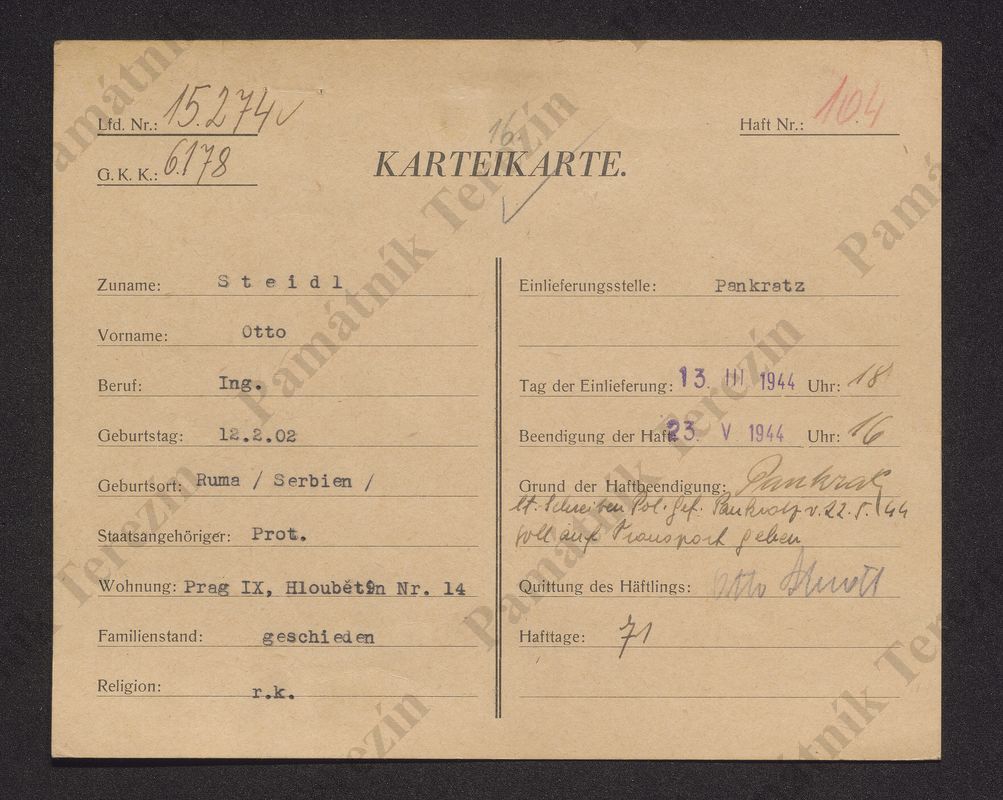 Lfd. Nr.: 15.274
G. K. K.: 6.178
Haft Nr.: 104
16.
KARTEIKARTE.
Zuname: Steidl
Vorname: Otto
Beruf: Ing.
Geburtstag: 12.2.02
Geburtsort: Ruma / Serbien /
Staatsangehöriger: Prot.
Wohnung: Prag IX, Hloubětín Nr. 14
Familienstand: geschieden
Religion: r.k.
Einlieferungsstelle: Pankratz
Tag der Einlieferung: 13. III 1944 Uhr: 18
Beendigung der Haft: 23. V 1944 Uhr: 16
Grund der Haftbeendigung: Pankratz
lt. Schreiben Pol. Gef. Pankratz v. 22.5.44
soll auf Transport gehen
Quittung des Häftlings: Otto Steidl
Hafttage: 71
Památník Terezín